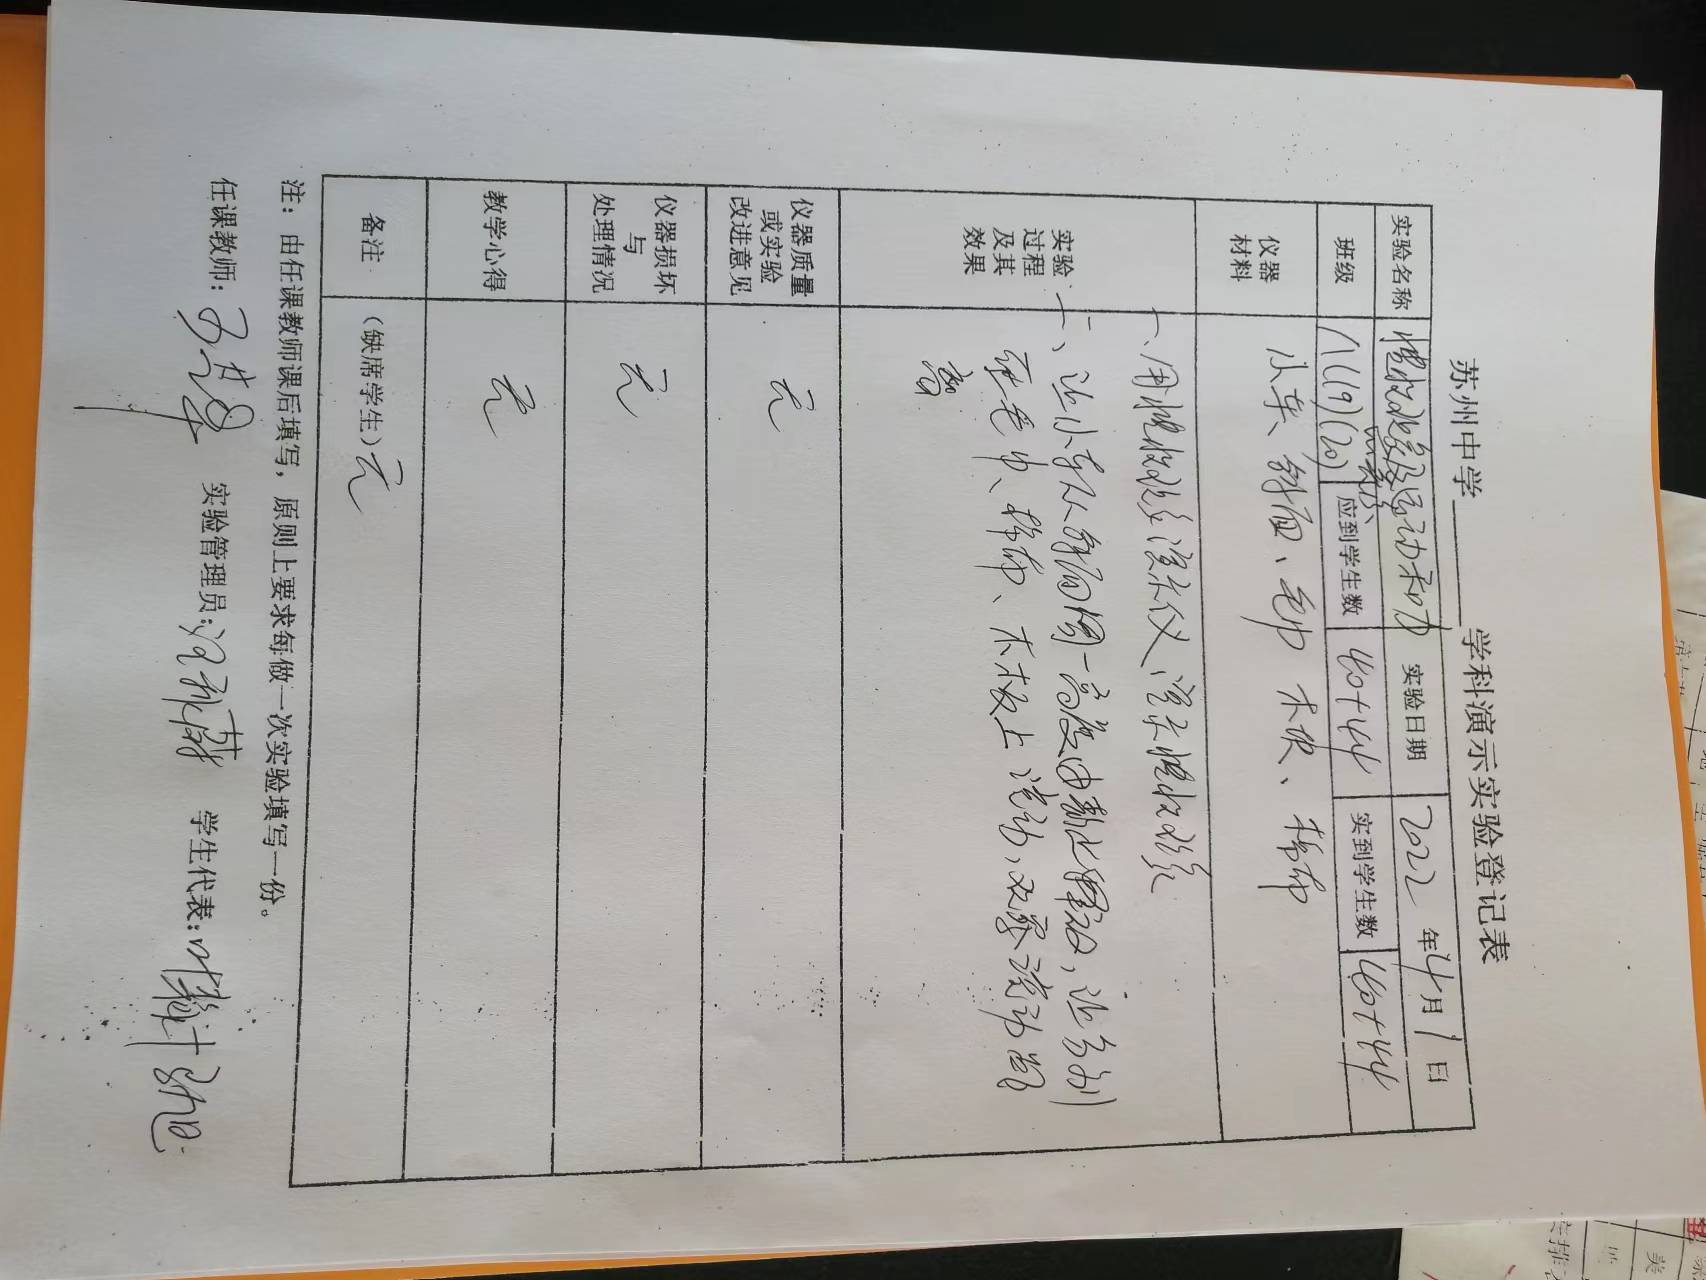 苏州中学 学科演示实验登记表
实验名称 惯性现象及运动和力 实验日期 2022 年 4 月 1 日
班级 八(19)(20) 应到学生数 40+44 实到学生数 40+44
仪器
材料
小车、斜面、毛巾 木块、棉布
实验
过程
及其
效果
一、用惯性演示仪、演示惯性现象
二、让小车从斜面同一高度由静止滑下,让分别
在毛巾、棉布、木板上运动,观察运动距
离
仪器质量
或实验
改进意见
无
仪器损坏
与
处理情况
无
教学心得
无
备注
(缺席学生)无
注:由任课教师课后填写,原则上要求每做一次实验填写一份。
任课教师: 实验管理员: 学生代表: